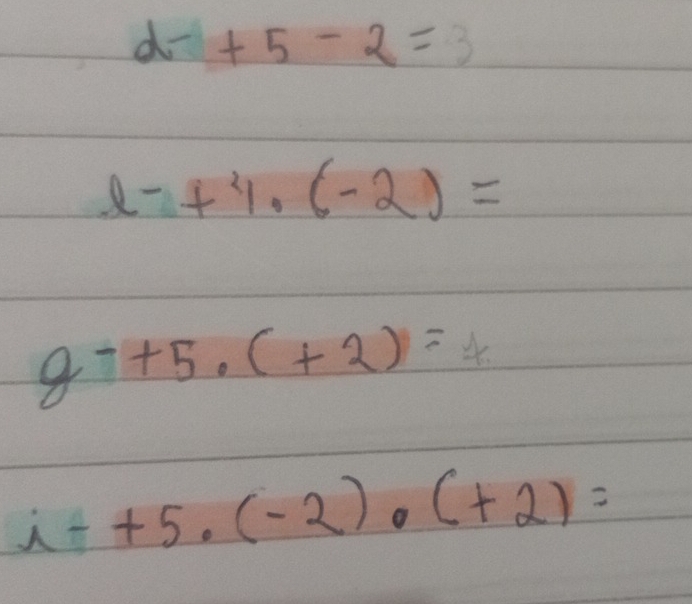 d- +5-2=3
l- +4.(-2)=
g- +5.(+2)=
i- +5.(-2).(+2)=